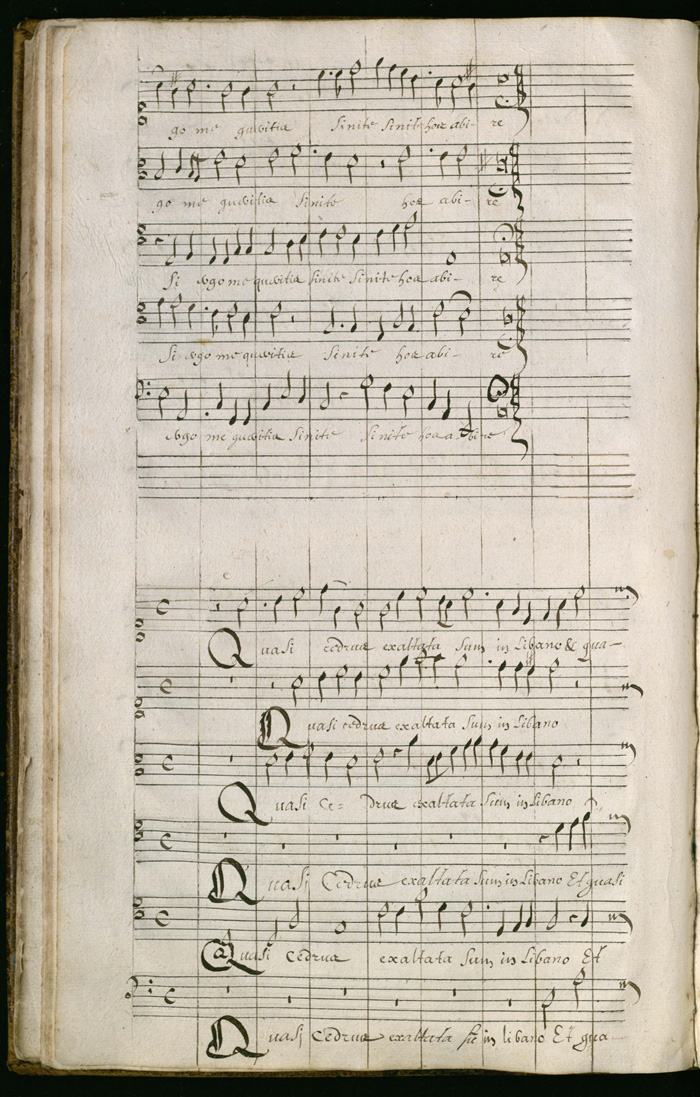 go me quæitis Sinite Sinite hos abi- re
go me quæitis Sinite hos abi- re
Si ego me quæitis sinite Sinite hos abi- re
Si ego me quæitis Sinite hos abi- re
ego me quæitis Sinite Sinite hos abire
Quasi cedrus exaltata Sum in Libano & qua-
Quasi cedrus exaltata Sum in Libano
Quasi Ce- drus exaltata Sum in Libano
Quasi Cedrus exaltata Sum in Libano Et quasi
Quasi Cedrus exaltata Sum in Libano Et
Quasi Cedrus exaltata in libano Et qua-